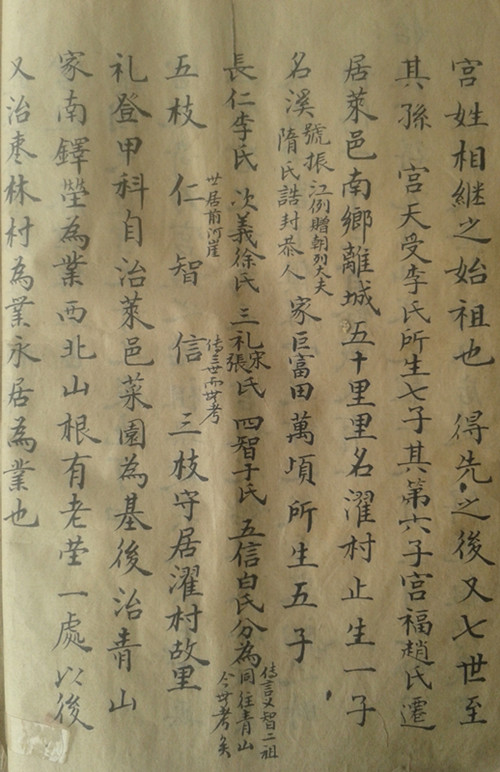 宫姓相継之始祖也 得先之後又七世至
其孫 宫天受李氏所生七子其第六子宫福趙氏遷
居萊邑南鄉離城五十里里名濯村止生一子
名溪號振江例贈朝列大夫隋氏誥封恭人家巨富田萬頃所生五子
長仁李氏 次義徐氏 三礼宋張氏 四智于氏 五信白氏分為傳言义智二祖同往青山今世考矣
五枝 仁世居前河崖 智 信傳三世而世考 三枝守居濯村故里
礼登甲科自治萊邑菜園為基後治青山
家南鐸塋為業西北山根有老塋一處以後
又治枣林村為業永居為業也